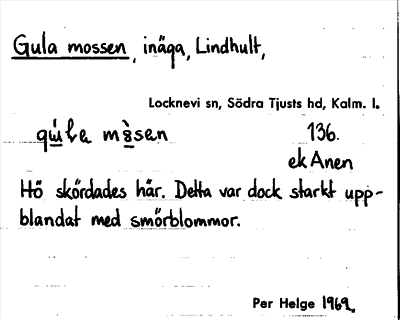 Gula mossen, inäga, Lindhult,
Locknevi sn, Södra Tjusts hd, Kalm. l.
136.
ek Anen
Hö skördades här. Detta var dock starkt upp-
blandat med smörblommor.
Per Helge 1969.